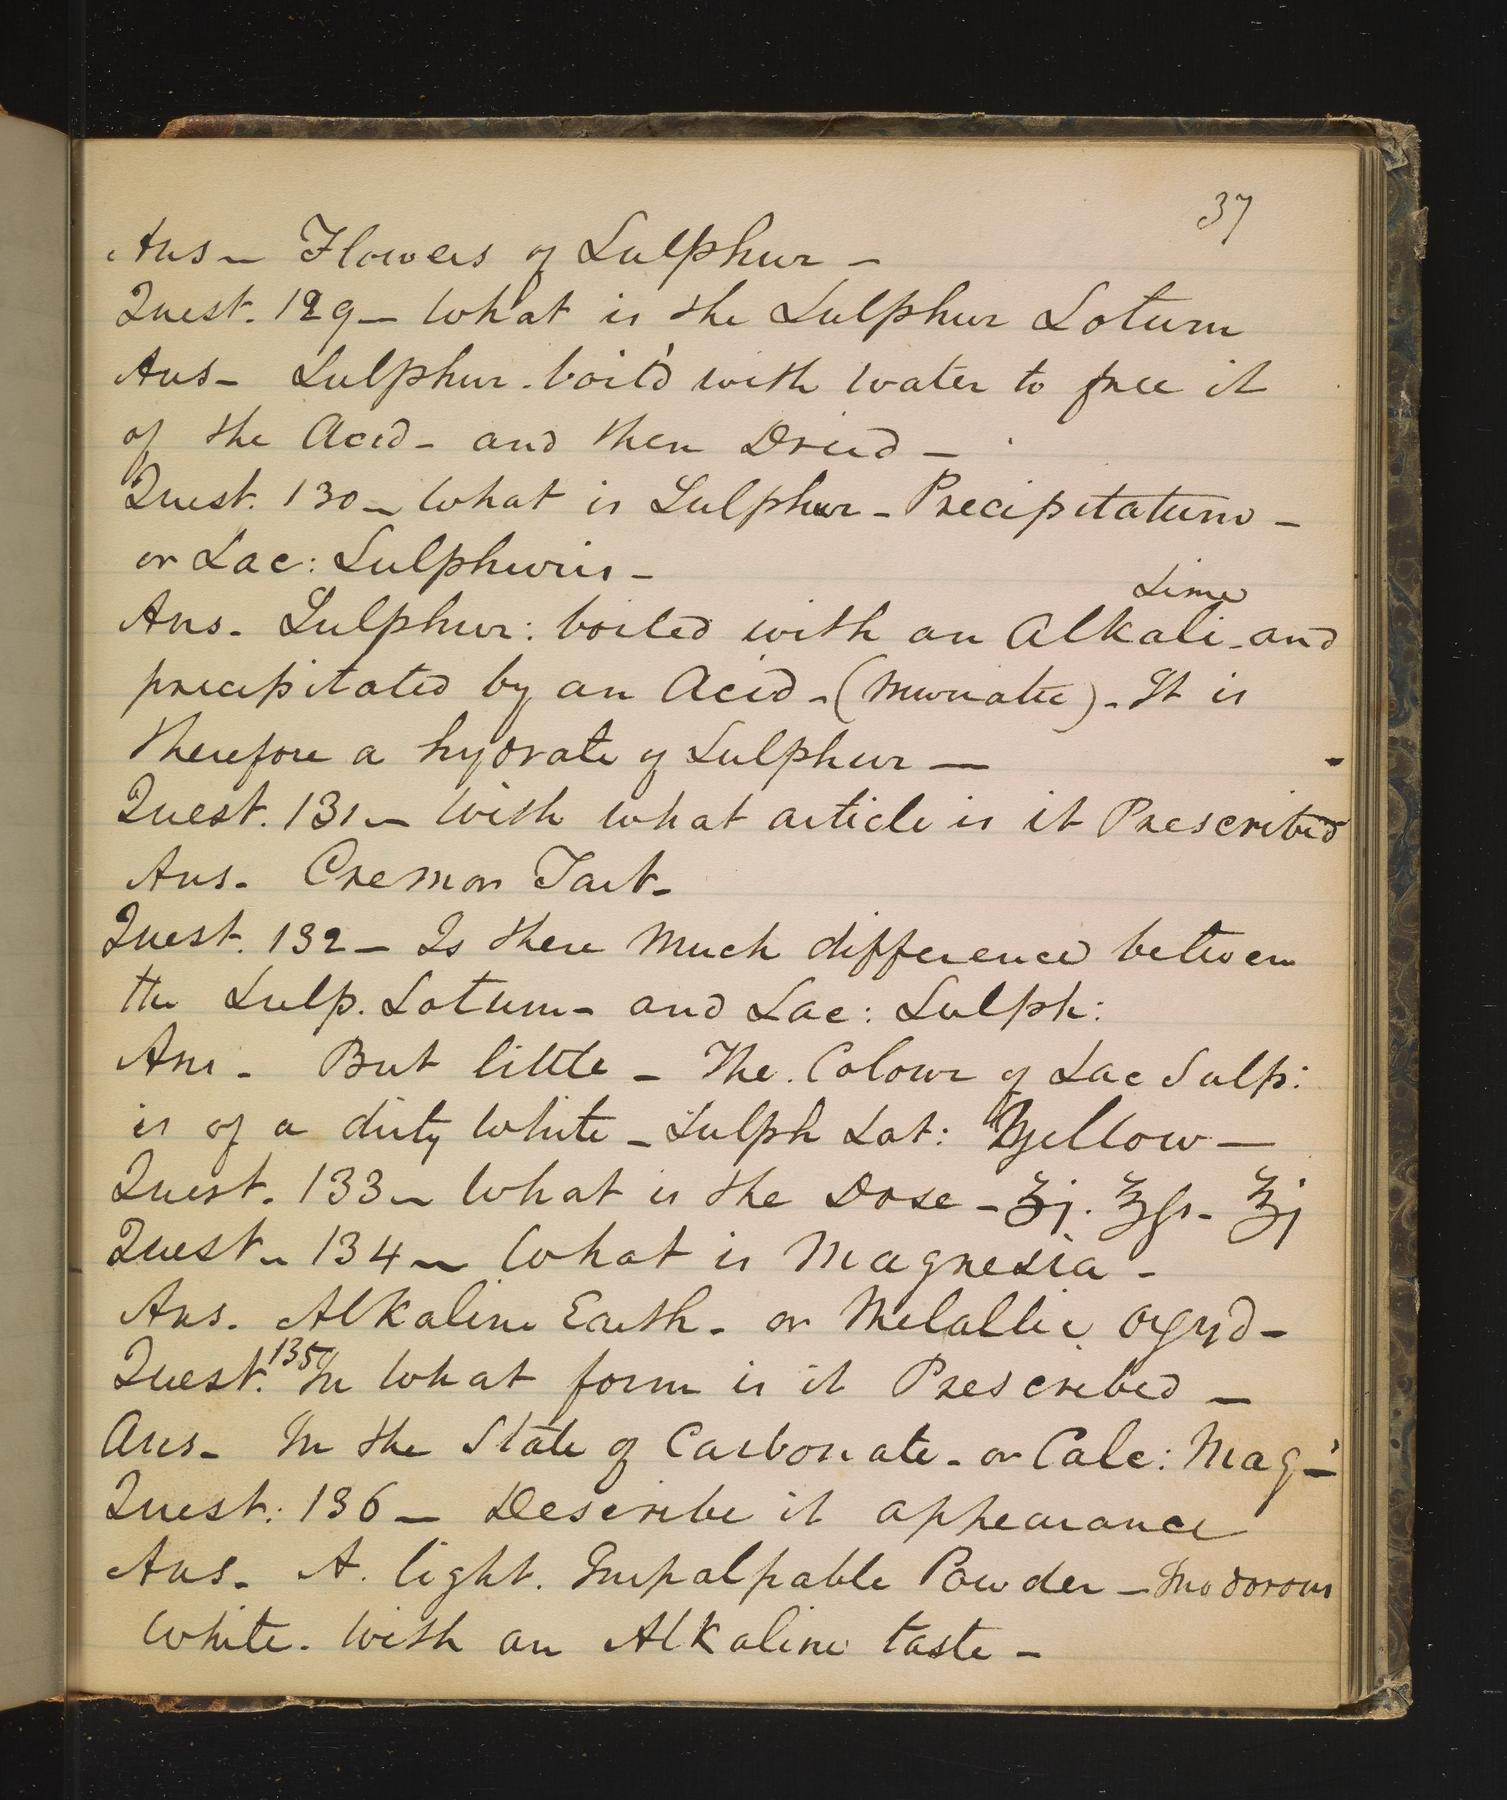 37
Ans - Flowers of Sulphur -
Quest. 129 - What is the Sulphur Lotum
Ans - Sulphur. boil'd with water to free it
of the Acid - and then Dried -
Quest. 130 - What is Sulphur - Precipitatum -
or Lac: Sulphuris -
Lime
Ans. Sulphur: boiled with an Alkali - and
precipitated by an Acid - (Muriatic) - It is
Therefore a hydrate of Sulphur —
Quest. 131 - With what article is it Prescribed
Ans. Cremor Tart -
Quest. 132 - Is there Much difference between
the Sulp. Lotum - and Lac: Sulph:
Ans - But little - The. Colour of Lac Sulp:
is of a dirty White - Sulph Lot: Yellow —
Quest. 133 - What is the Dose - ʒj. ʒſs - ℥j
Quest - 134 - What is Magnesia -
Ans. Alkaline Earth - or Metallic Oxyd -
Quest. 135 In What form is it Prescribed -
Ans - In the State of Carbonate - or Calc: Mag -
Quest: 136 - Describe it appearance
Ans - A. light. Impalpable Powder - Inodorous
White. With an Alkaline taste -